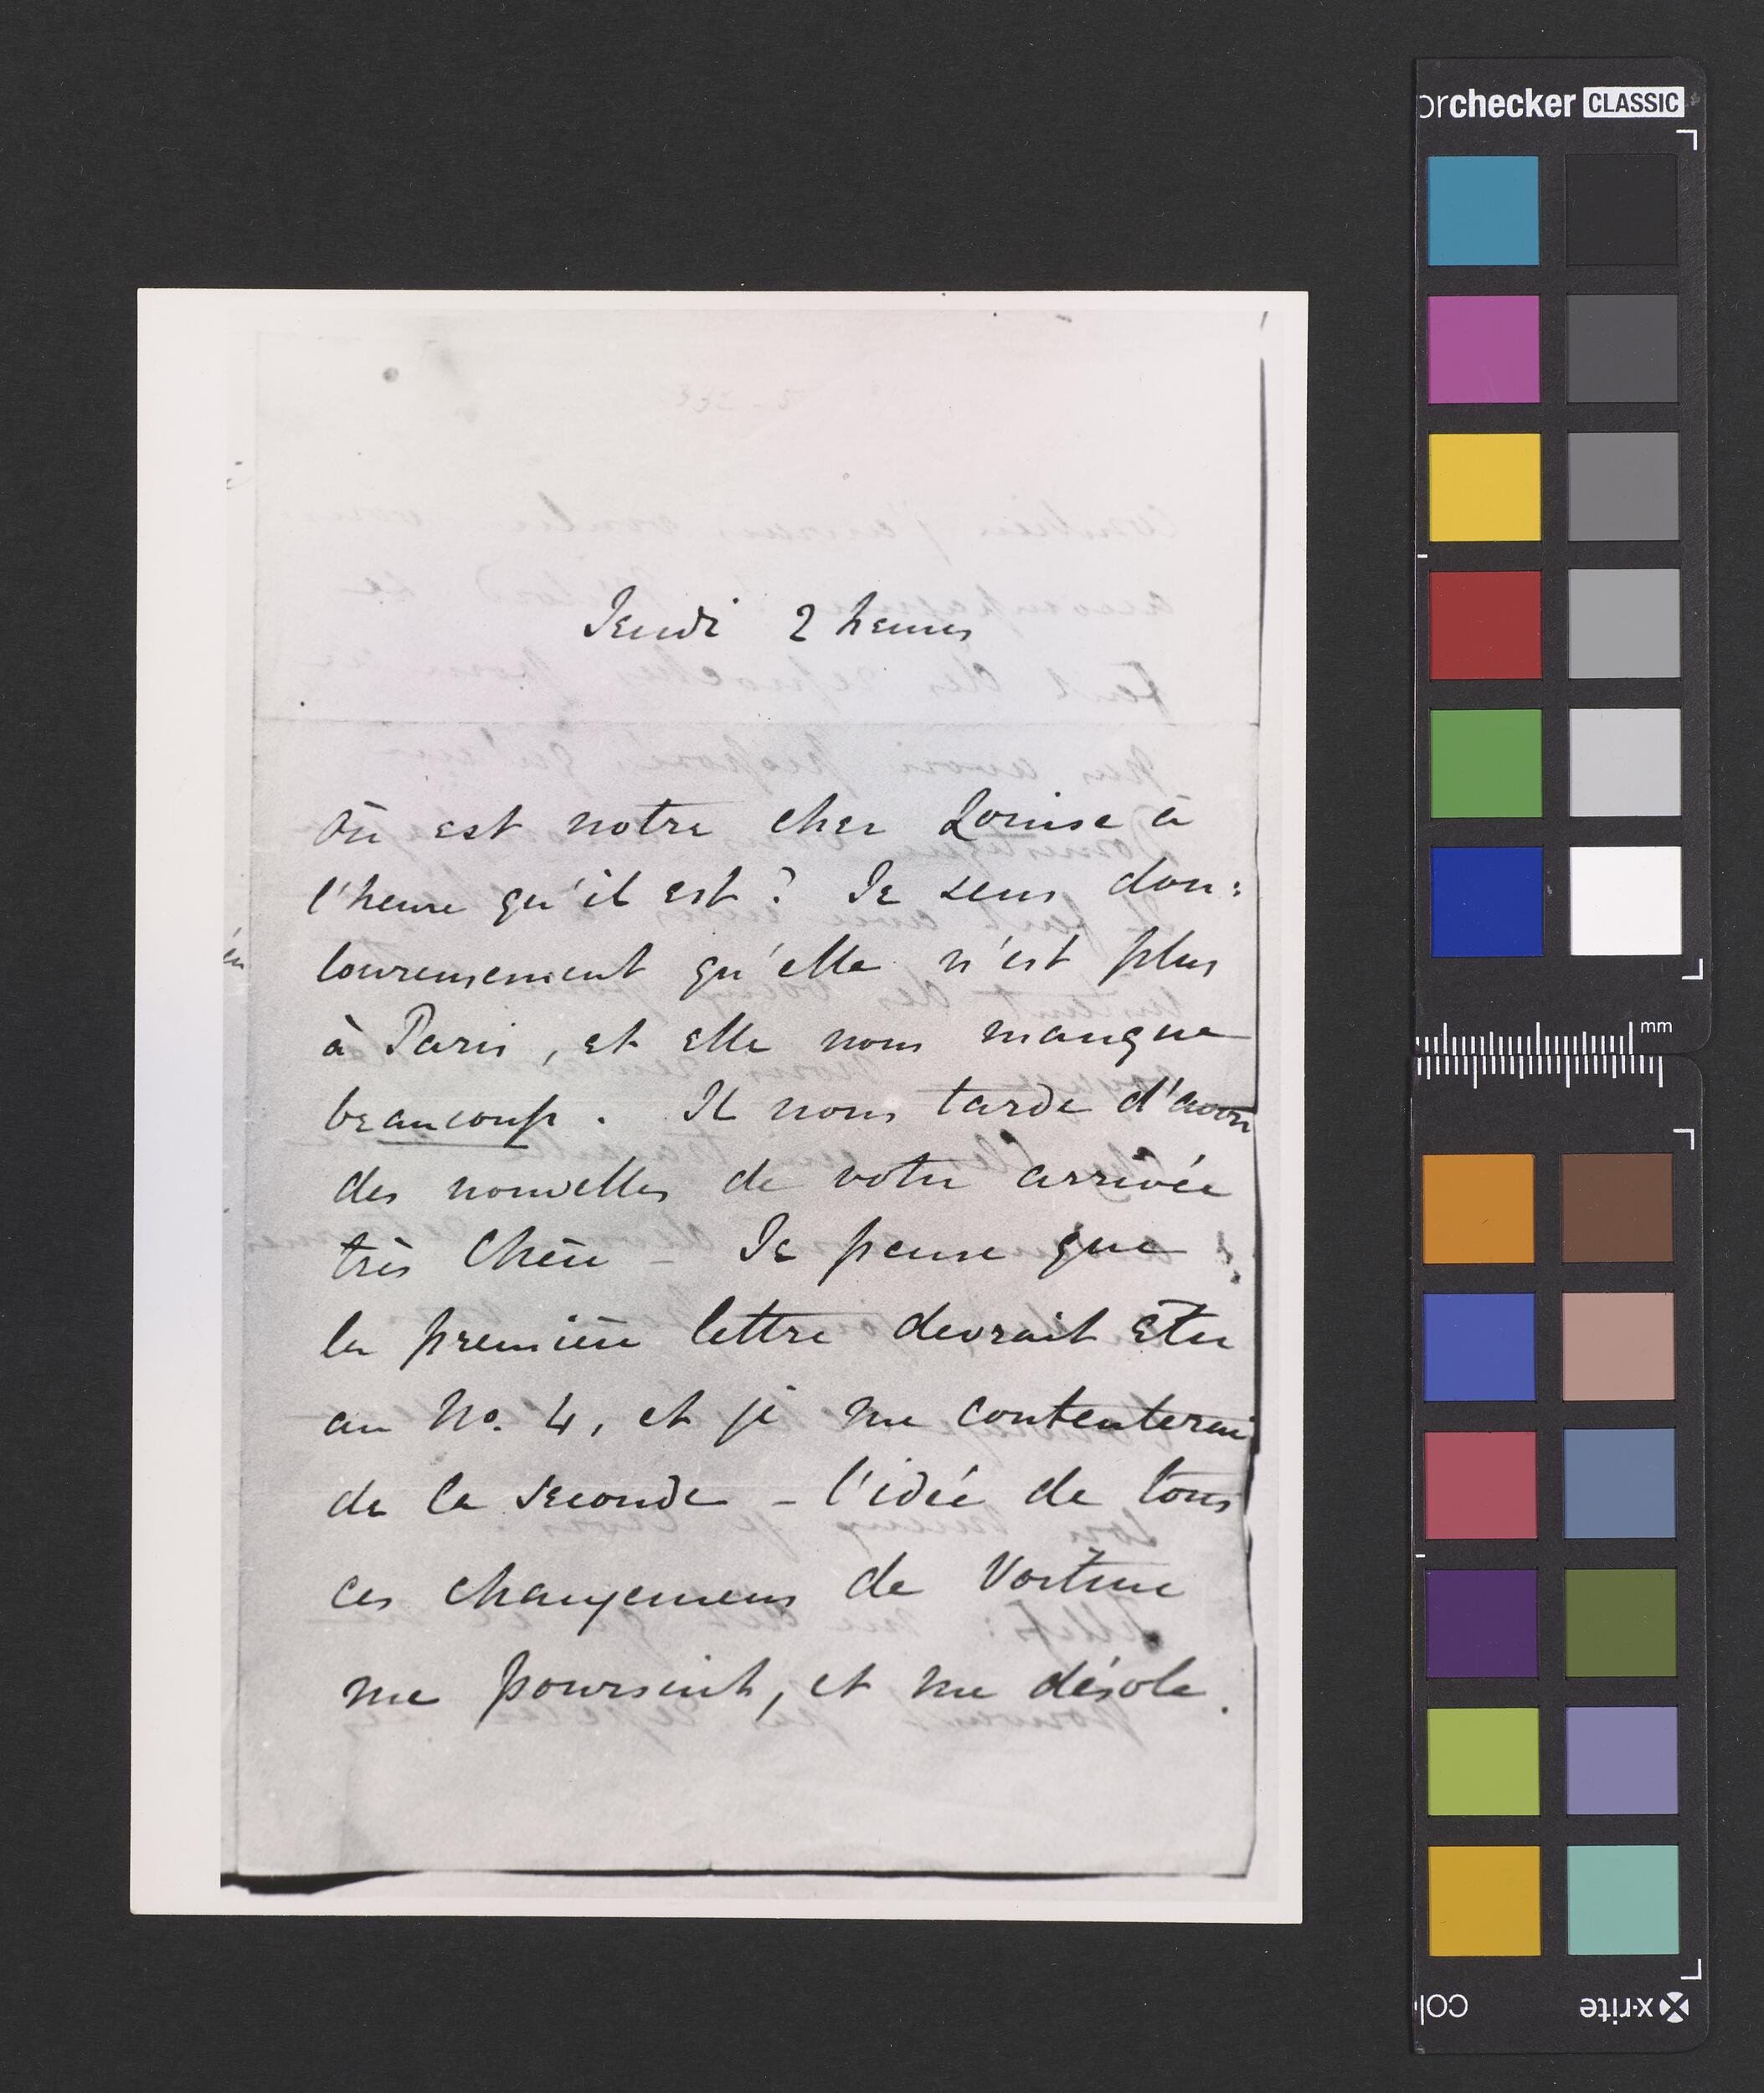 Jeudi 2 heures
Où est notre cher Louise à
l'heure qu'il est? Je sens dou:
loureusement qu'elle n'est plus
à Paris, et elle nous manque
beaucoup. Il nous tarde d'avoir
des nouvelles de votre arrivée
très Chère – Je pense que
la première lettre devrait être
au No. 4, et je me contenterai
de la seconde – l'idée de tous
ces changemens de Voiture
me poursuit, et me désole.
orchecker CLASSIC
mm
x-rite
colo